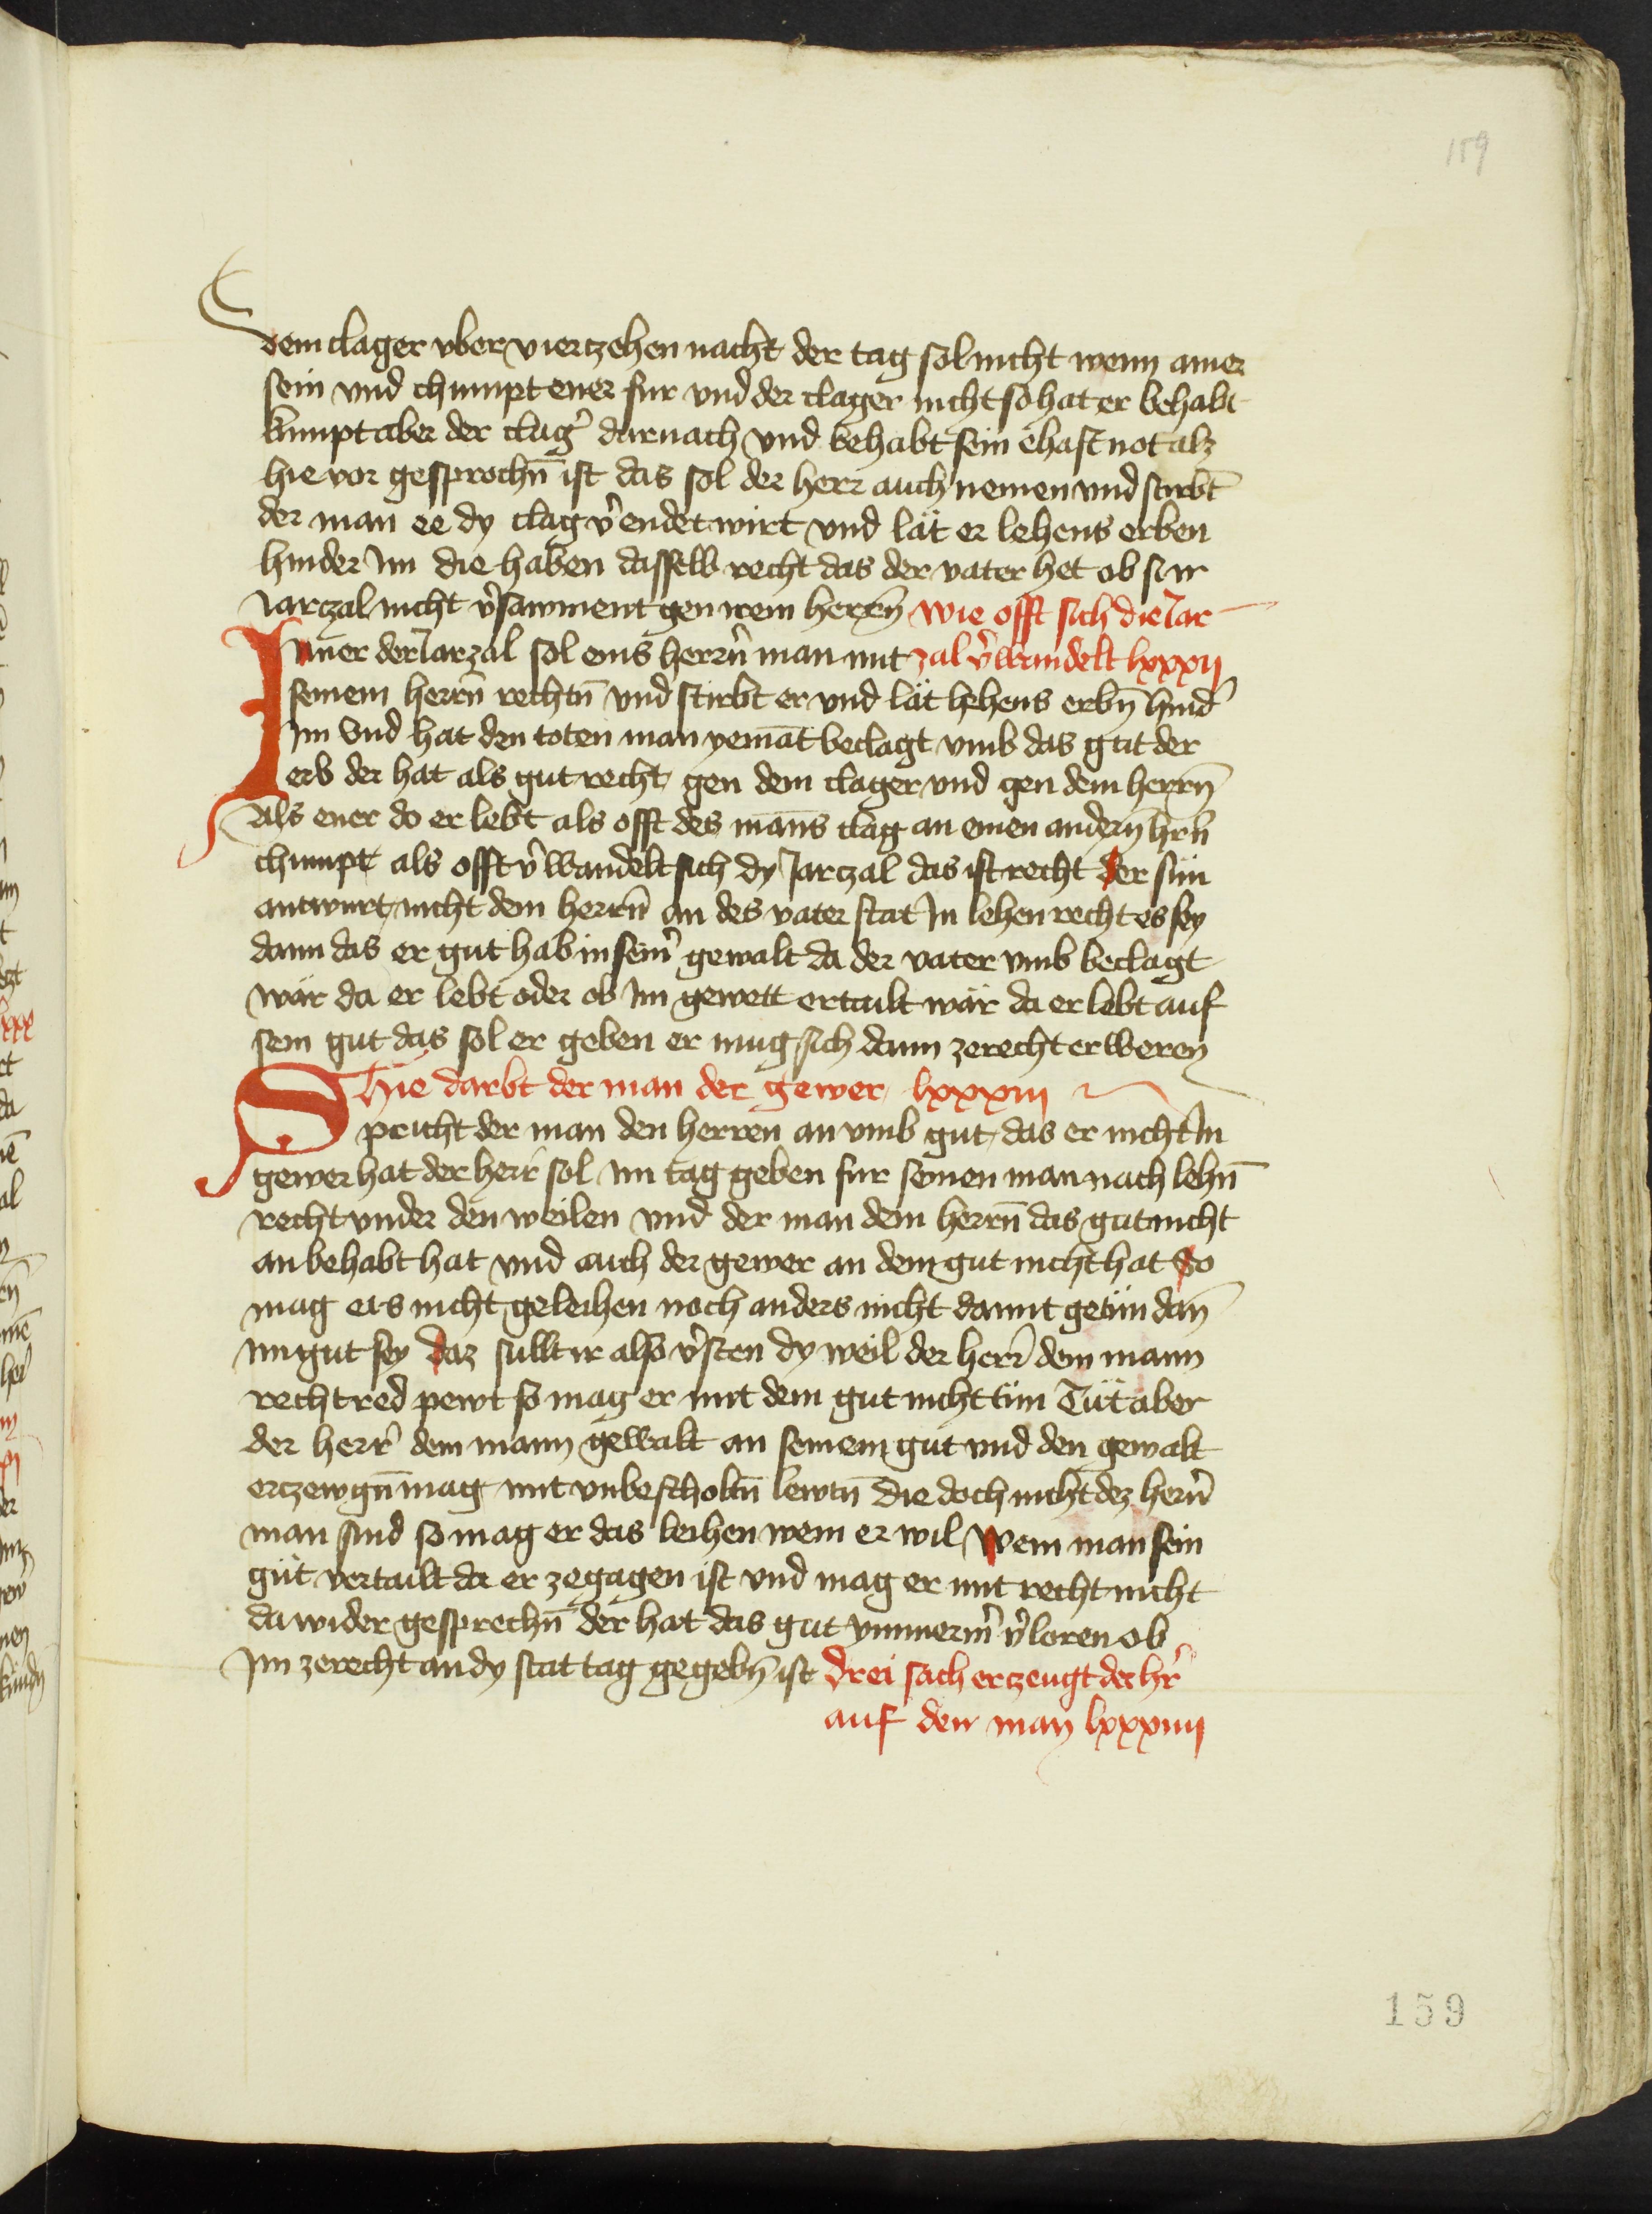 159
dem clager vber viertzehen nacht der tag sol nicht wenn ainer
sein vnd chumpt ener fur vnd der clager nicht so hat er behabt
kumpt aber der clag̉ darnach vnd behabt sein ehaft not alz
hie vor gesprochn̄ ist das sol der herr auch nemen vnd stirbt̄
der man ee dy clag v̉endet wirt vnd lät er lehens erben
hinder Im die haben dasselb recht das der vater het ob si ir
Jarczal nicht v̉sawment gen irem herrn̄ wie offt sich die Jar
Inner der Jarzal sol eins herrn̄ man mit zal v̉wandelt lxxxij
seinem herrn̄ rechtn̄ vnd stirbt er vnd lät lehens erbn̄ hind̉
Im Vnd hat den toten man yemāt beclagt vmb das gut der
erb der hat als gut recht gen dem clager vnd gen dem herrn̄
Als ener do er lebt als offt des māns clag an einen andern̄ hrn̄
chumpt als offt v̉wandelt sich dy Jarczal das ist recht Der sün
antwurt nicht dem herrn̄ an des vater stat In lehen recht es sey
dann das er gut hab in sein̉ gewalt da der vater vmb beclagt
wär da er lebt oder ob Im gewett ertailt wär da er lebt auf
sein gut das sol er geben er mug sich dann zerecht erweren
Hie darbt der man der gewer lxxxiij
Spricht der man den herren an vmb gut das er nicht In
gewer hat der herr̉ sol Im tag geben fur seinen man nach lehn̄
recht vnder den weilen vnd der man dem herrn̄ das gut nicht
an behabt hat vnd auch der gewer an dem gut nicht hat So
mag ers nicht geleihen noch anders nicht damit getün dan̄
Im gut sey daz sullt ir also v̉sten dy weil der herr̉ dem mann
recht red pewt so mag er mit dem gut nicht tün Tüt aber
der herr̉ dem mann gewalt an seinem gut vnd den gewalt
erczewgn̄ mag mit vnbescholtn̄ lewtn̄ die doch nicht dez herrn̉
man sind so mag er das leihen wem er wil Wem man sein
güt vertailt da er zegagen ist vnd mag er mit recht nicht
da wider gesprechn̄ der hat das gut ymmerm̉ v̉loren ob
Im zerecht an dy stat tag gegebn̄ ist Drei sach erzeugt der hr̉
auf den man lxxxiiij
159